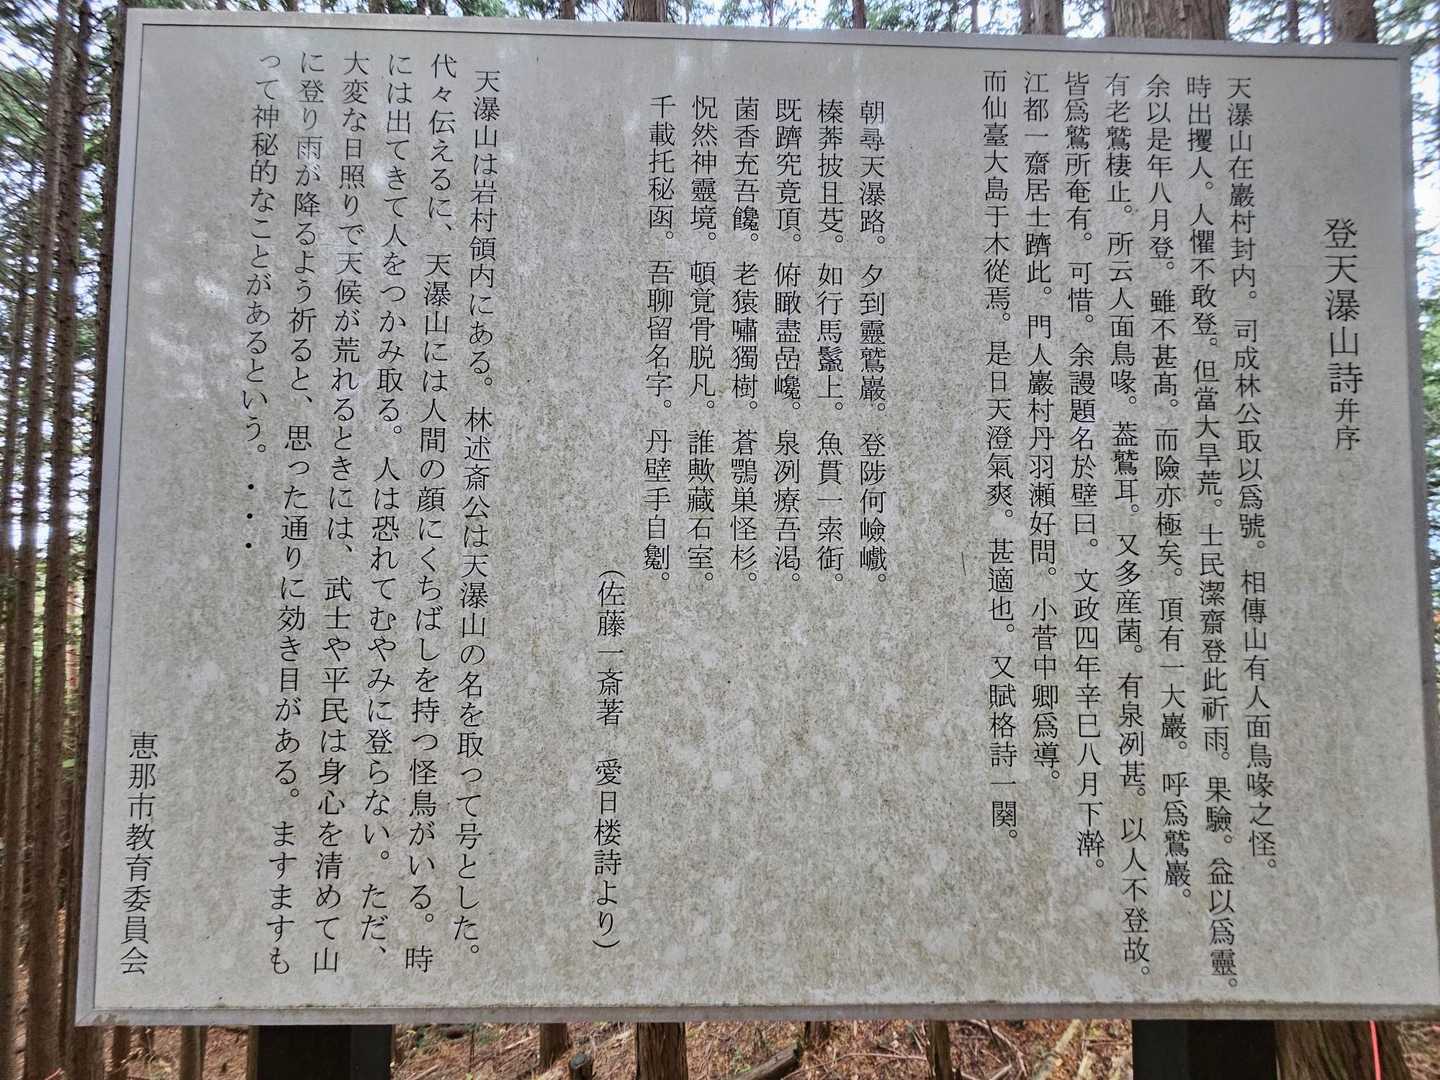 登天瀑山詩并序
天瀑山在巖村封内。司成林公取以爲號。相傳山有人面鳥喙之怪。
時出攫人。人懼不敢登。但當大旱荒。士民潔齋登此祈雨。果驗。益以爲靈。
余以是年八月登。雖不甚髙。而險亦極矣。頂有一大巖。呼爲鷲巖。
有老鷲棲止。所云人面鳥喙。葢鷲耳。又多産菌。有泉冽甚。以人不登故。
皆爲鷲所奄有。可惜。余謾題名於壁曰。文政四年辛巳八月下澣。
江都一齋居士躋此。門人巖村丹羽瀬好問。小菅中卿爲導。
而仙臺大島于木從焉。是日天澄氣爽。甚適也。又賦格詩一闋。
朝尋天瀑路。夕到靈鷲巖。登陟何嶮巇。
榛莽披且芟。如行馬鬣上。魚貫一索銜。
既躋究竟頂。俯瞰盡嵒巉。泉冽療吾渇。
菌香充吾饞。老猿嘯獨樹。蒼鶚巣怪杉。
怳然神靈境。頓覚骨脱凡。誰歟藏石室。
千載托秘函。吾聊留名字。丹壁手自劖。
（佐藤一斎著　愛日楼詩より）
天瀑山は岩村領内にある。林述斎公は天瀑山の名を取って号とした。
代々伝えるに、天瀑山には人間の顔にくちばしを持つ怪鳥がいる。時
には出てきて人をつかみ取る。人は恐れてむやみに登らない。ただ、
大変な日照りで天候が荒れるときには、武士や平民は身心を清めて山
に登り雨が降るよう祈ると、思った通りに効き目がある。ますますも
って神秘的なことがあるという。・・・
恵那市教育委員会